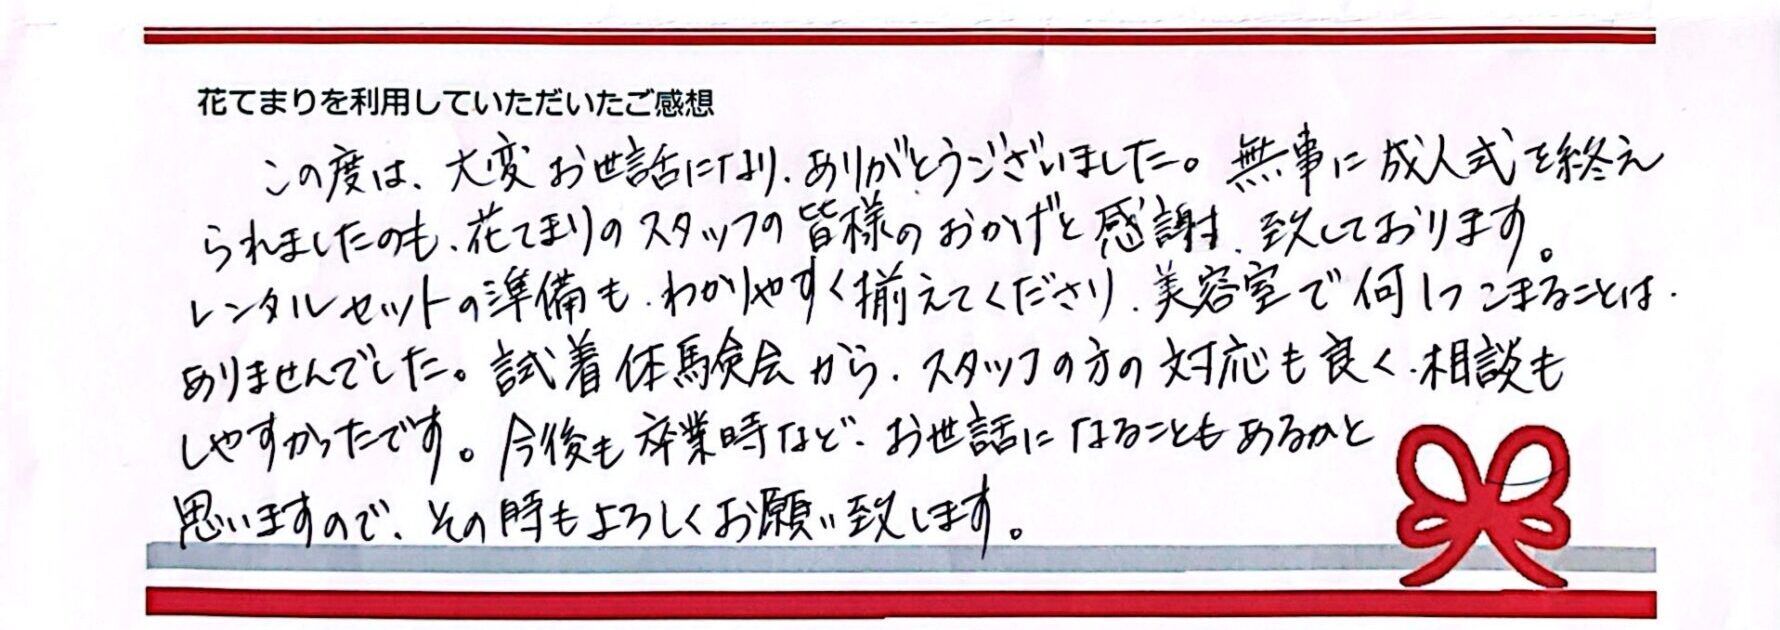 花てまりを利用していただいたご感想
この度は、大変お世話になり、ありがとうございました。無事に成人式を終え
られましたのも、花てまりのスタッフの皆様のおかげと感謝、致しております。
レンタルセットの準備も、わかりやすく揃えてくださり、美容室で何1つこまることは、
ありませんでした。試着体験会から、スタッフの方の対応も良く、相談も
しやすかったです。今後も卒業時など、お世話になることもあるかと
思いますので、その時もよろしくお願い致します。